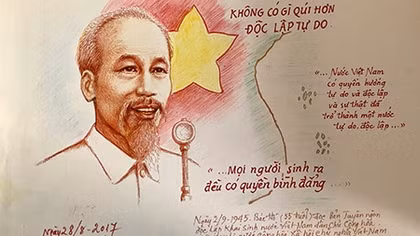 KHÔNG CÓ GÌ QUÍ HƠN
ĐỘC LẬP TỰ DO
"... Nước Việt Nam
có quyền hưởng
tự do và độc lập
và sự thật đã
trở thành một nước
tự do, độc lập ...
"... Mọi người sinh ra
đều có quyền bình đẳng ...
Ngày 28/8-2017
Ngày 2/9-1945. Bác Hồ (55 tuổi) đọc Bản Tuyên ngôn
độc lập Khai Sinh nước Việt Nam dân chủ Cộng hòa